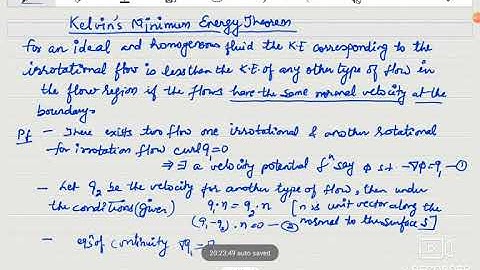 Kelvin's Minimum Energy Theorem
for an ideal and homogenous fluid the K.E corresponding to the
irrotational flow is less than the K.E. of any other type of flow in
the flow region if the flows have the same normal velocity at the
boundary.
Pf - There exists two flow one irrotational & another rotational
for irrotation flow curl q₁ = 0
⇒ ∃ a velocity potential fⁿ say ϕ s.t -∇ϕ = q₁ -①
- Let q₂ be the velocity for another type of flow, then under
the conditions (given) q₁.n = q₂.n [n is unit vector along the
(q₁-q₂).n=0 -② normal to the surface S]
- eqⁿ of continuity ∇q₁ =
20:23:49 auto saved